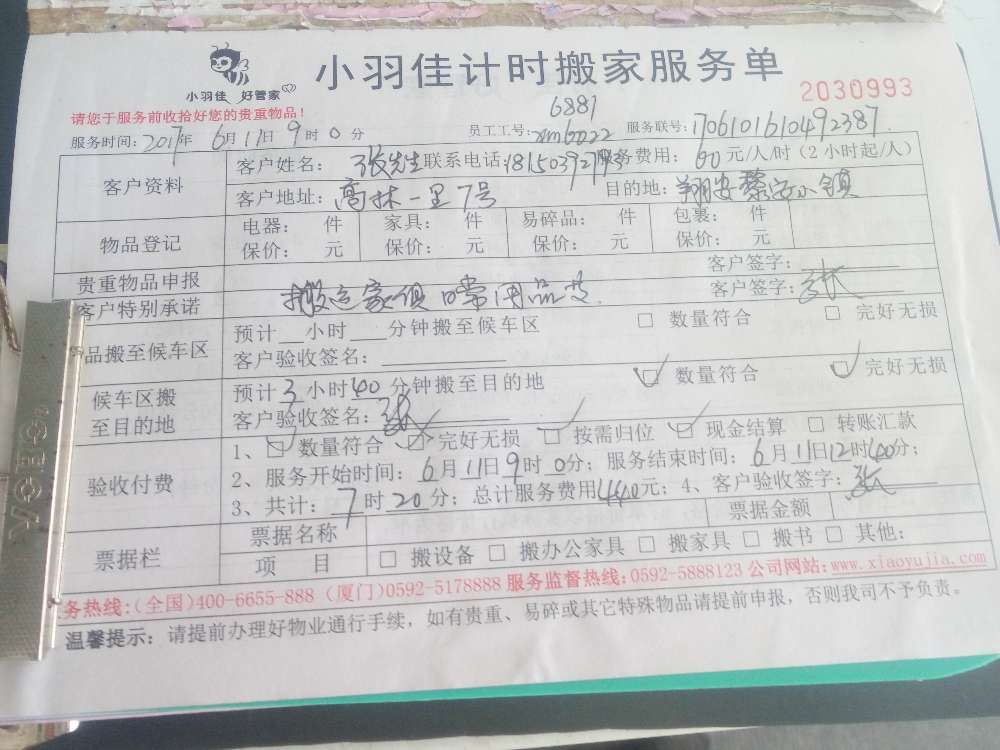 小羽佳计时搬家服务单
小羽佳 好管家
2030993
请您于服务前收拾好您的贵重物品!
6881
服务时间: 2017年 6月11日9时0分 员工工号: xm6022 服务联号: 1706101610492387
客户资料 客户姓名: 张先生 联系电话: 服务费用: 60元/人/时 (2小时起/人)
客户地址: 高林一里7号 目的地: 翔安黎安小镇
物品登记 电器: 件 家具: 件 易碎品: 件 包裹: 件
保价: 元 保价: 元 保价: 元 保价: 元
贵重物品申报 客户签字:
客户特别承诺 搬运家俱日常用品 客户签字: 张
品搬至候车区 预计 小时 分钟搬至候车区 □ 数量符合 □ 完好无损
客户验收签名:
候车区搬至目的地 预计3小时40分钟搬至目的地 ☑ 数量符合 ☑ 完好无损
客户验收签名: 张
验收付费 1、☑ 数量符合 ☑ 完好无损 ☑ 按需归位 ☑ 现金结算 □ 转账汇款
2、服务开始时间: 6月11日9时0分; 服务结束时间: 6月11日12时40分;
3、共计: 7时20分; 总计服务费用440元; 4、客户验收签字: 张
票据栏 票据名称 票据金额
项 目 □ 搬设备 □ 搬办公家具 □ 搬家具 □ 搬书 □ 其他:
务热线:(全国)400-6655-888 (厦门)0592-5178888 服务监督热线:0592-5888123 公司网站:www.xiaoyujia.com
温馨提示: 请提前办理好物业通行手续, 如有贵重、易碎或其它特殊物品请提前申报, 否则我司不予负责。